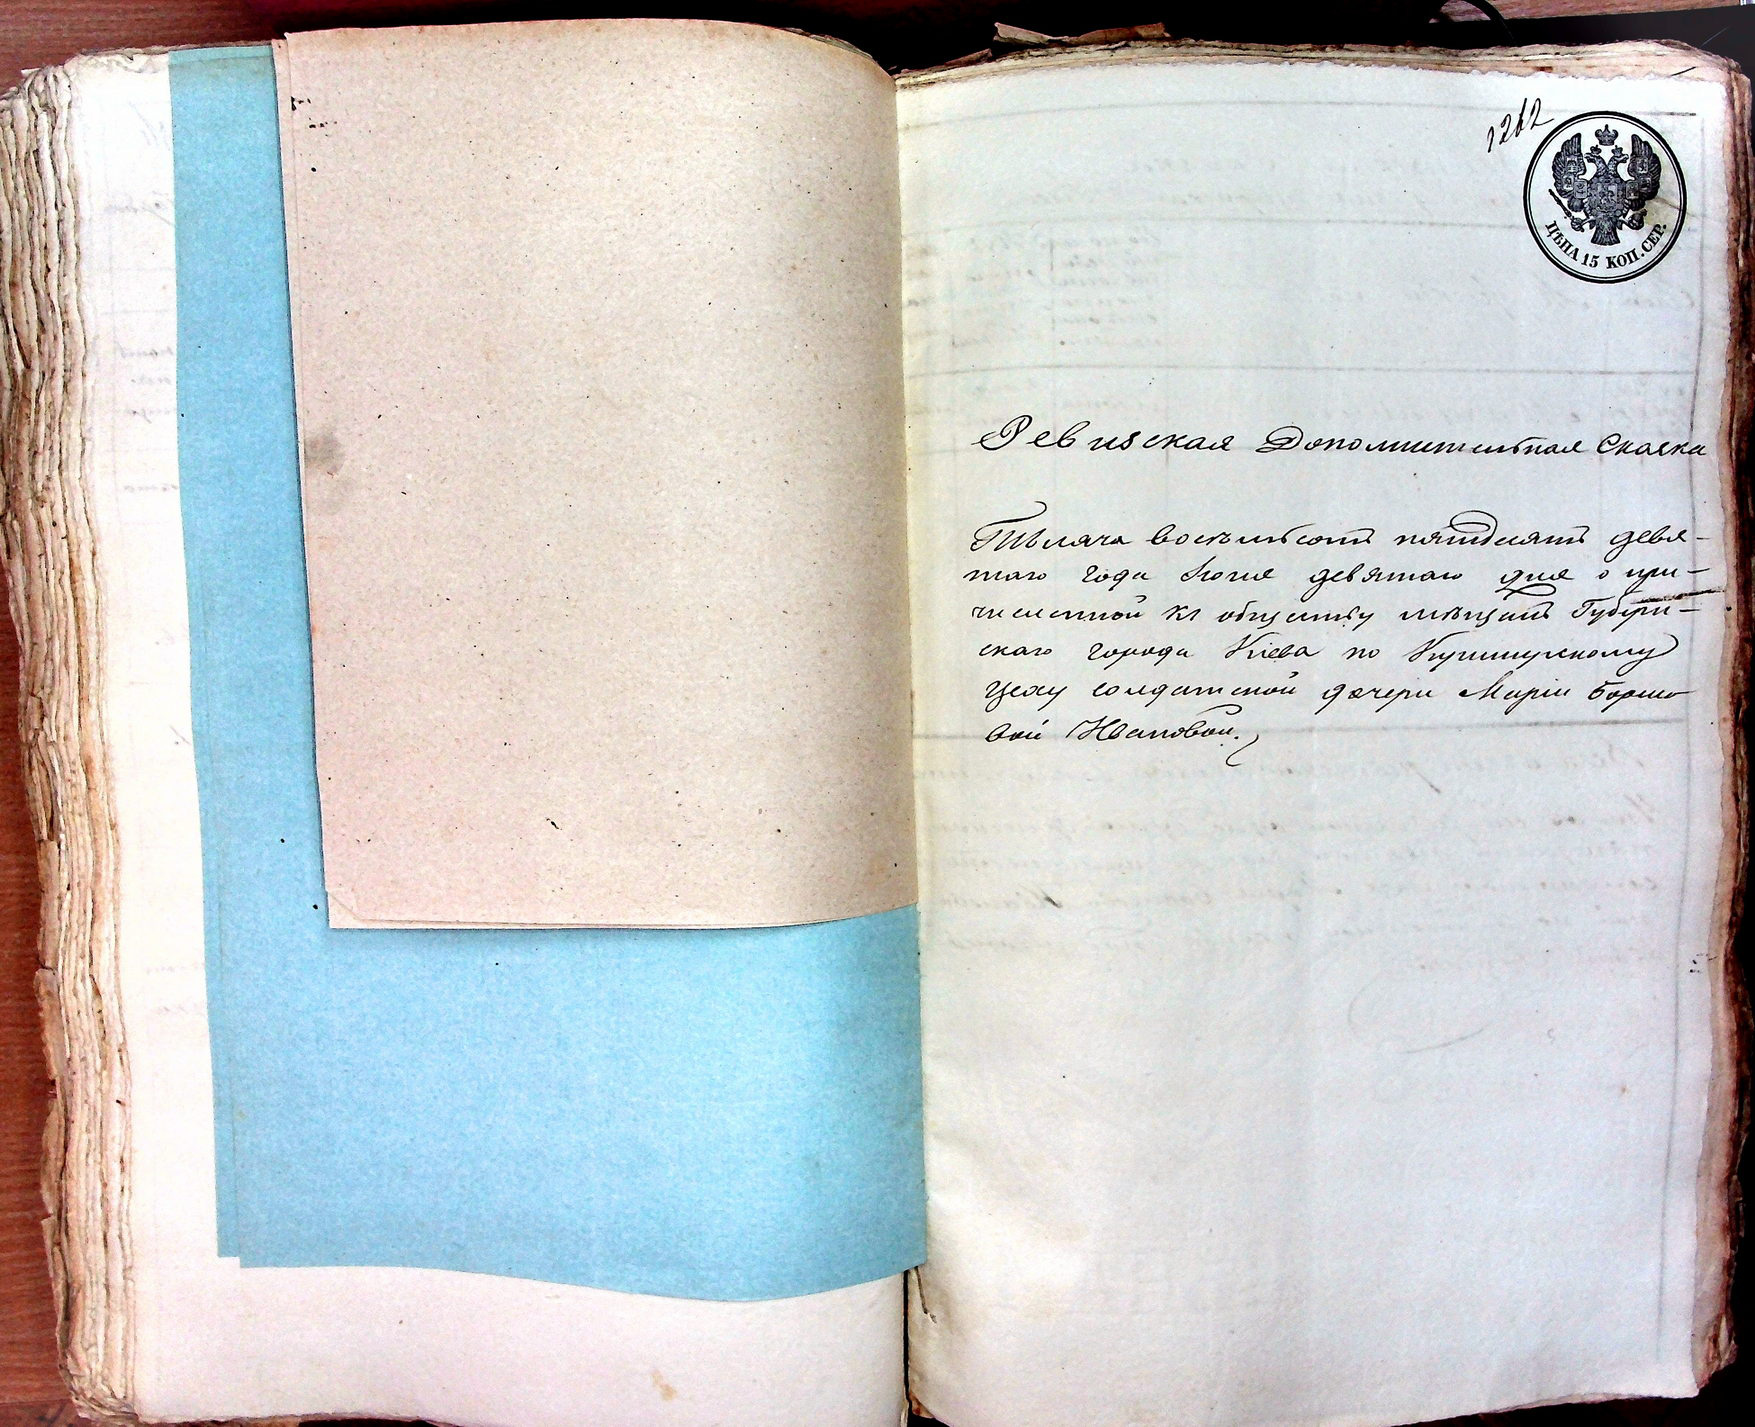 1262
ЦѢНА 15 КОП. СЕР.
Ревизская Дополнительная Сказка
Тысяча восемьсотъ пятдесятъ девя-
таго года Іюня девятаго дня о при-
численной къ обществу мѣщанъ Губерн-
скаго города Кіева по
цеху солдатской дочери Маріи
вой Ивановой.